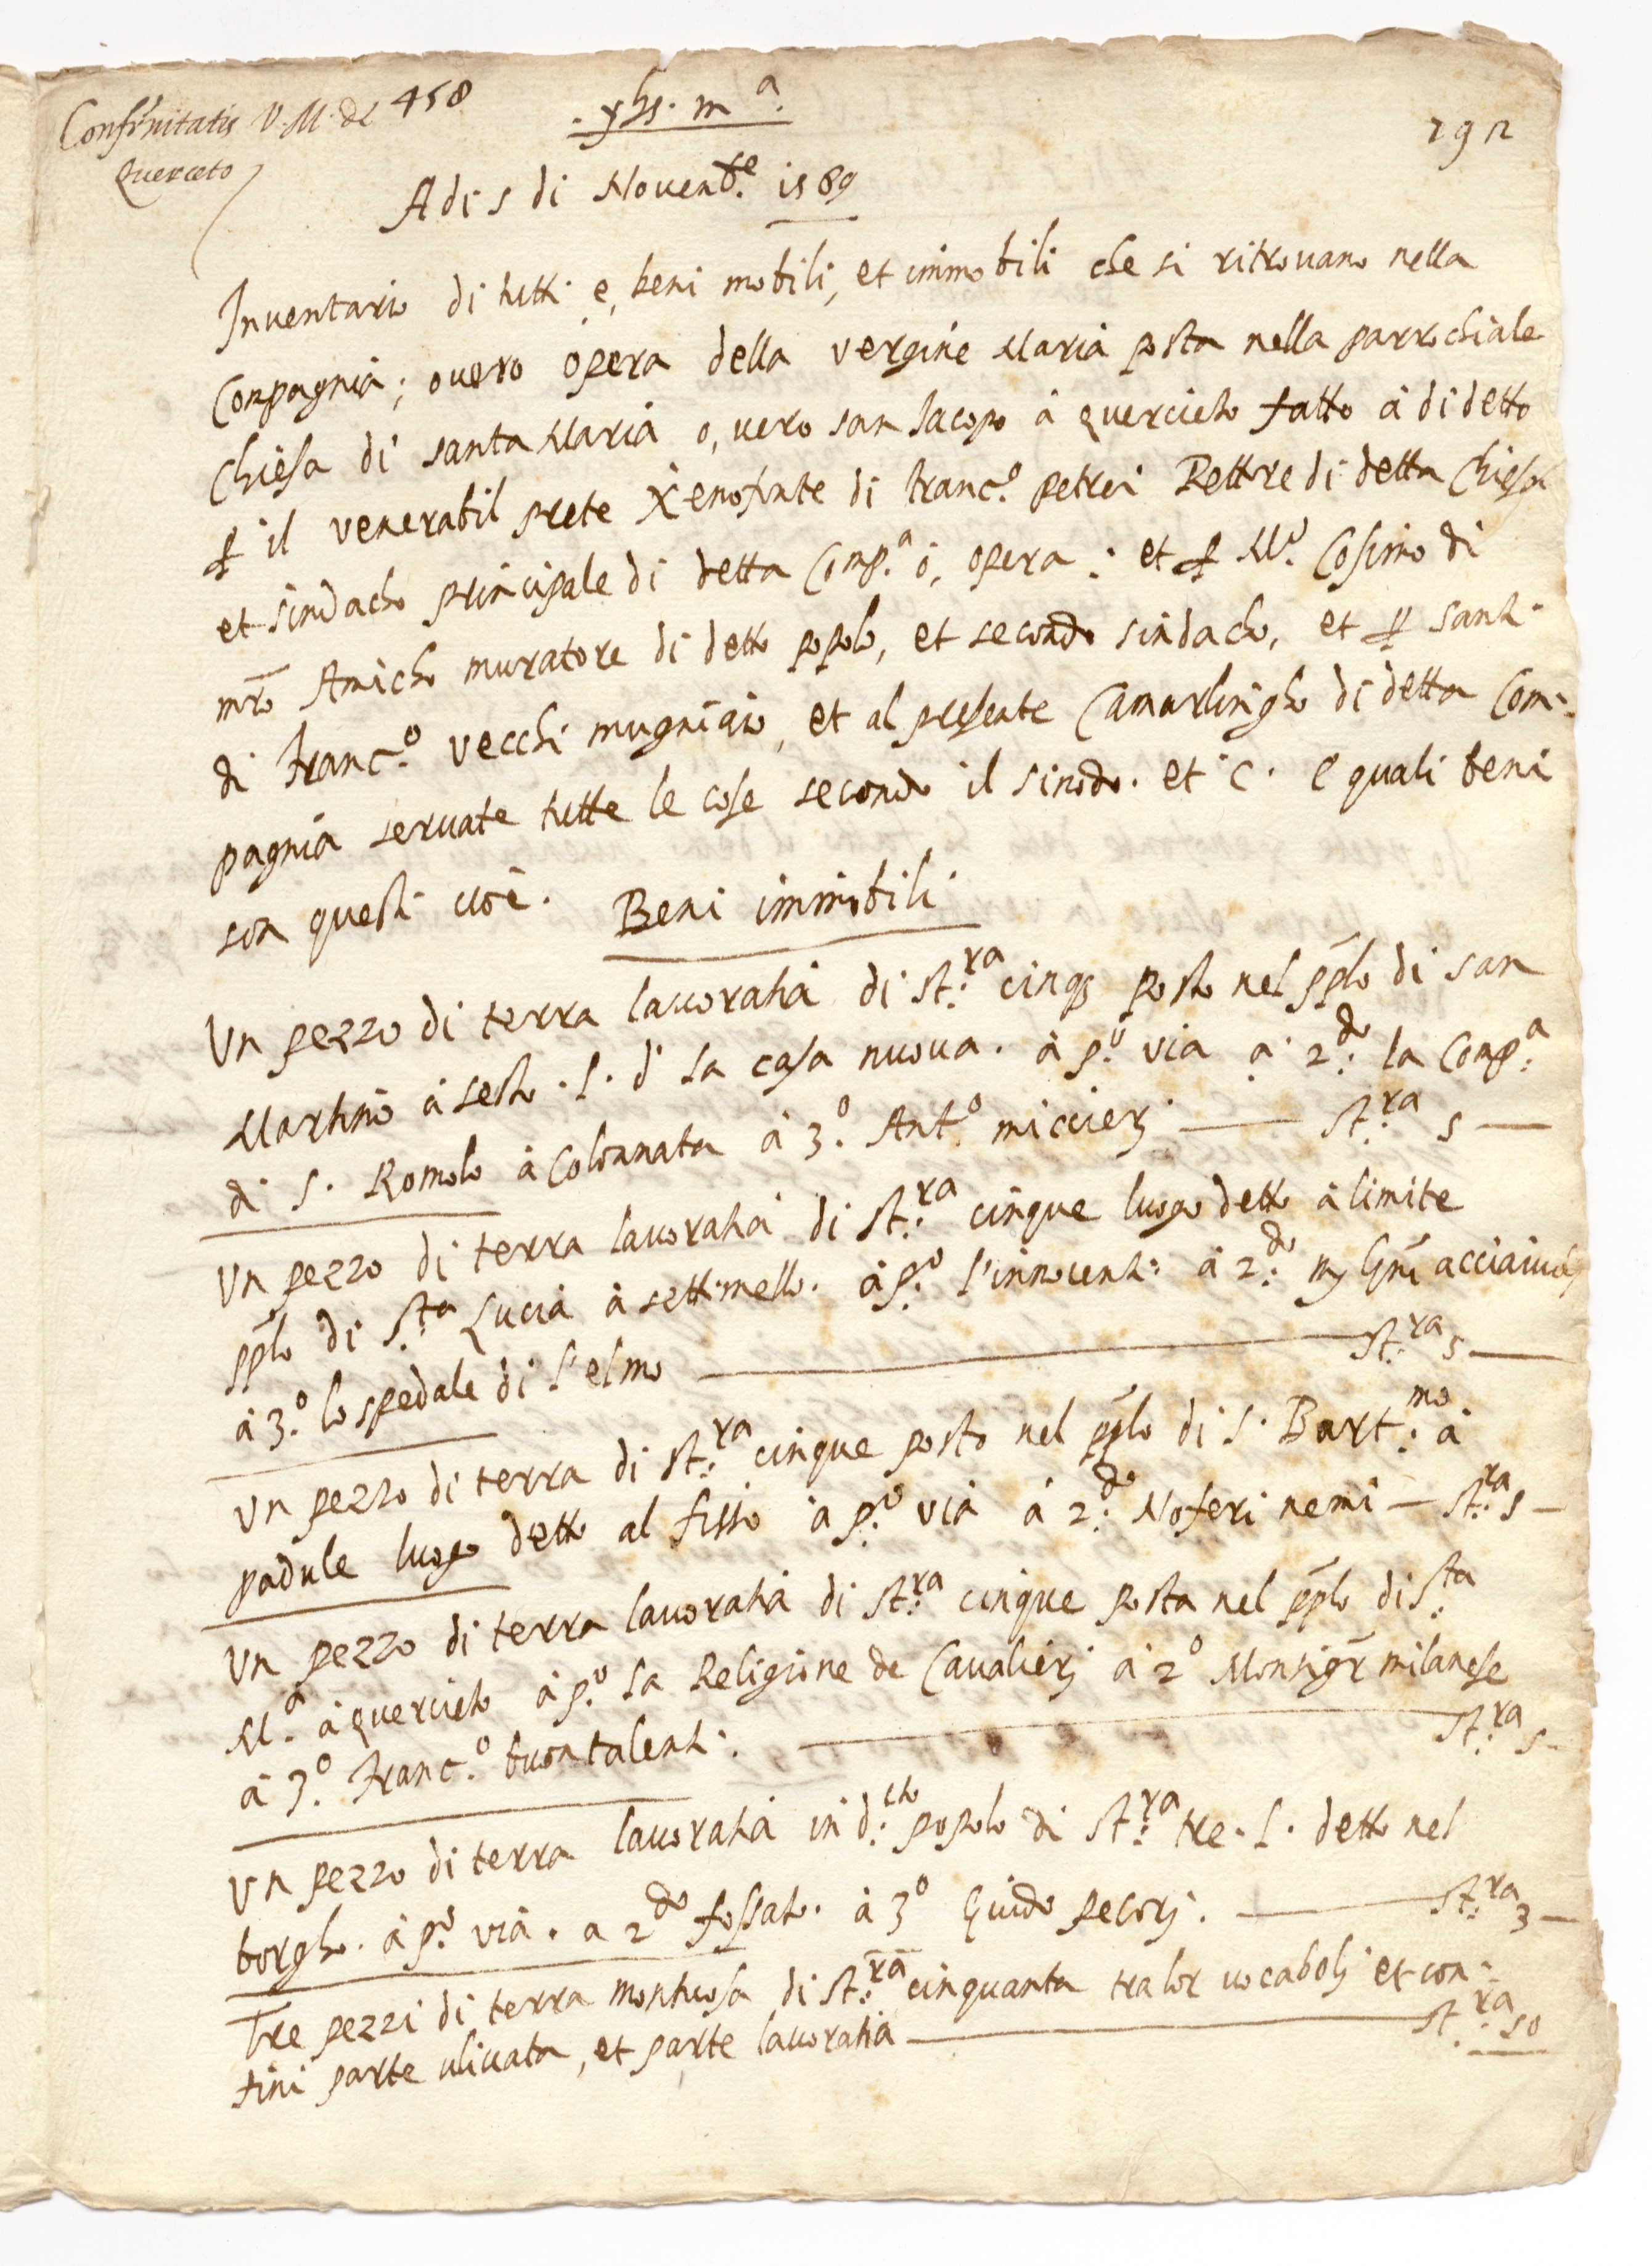 Confr̃nitatis V. M. de 458
Querceto
. yhs. mª.
192
Adi 5 di Novenb.e 1589
Inventario di tutti e, beni mobili, et immobili che si ritrovano nella
Compagnia; overo opera della vergine Maria posta nella parrochiale
Chiesa di santa Maria o, vero san Jacopo à quercieto fatto à di detto
ꝑ il venerabil prete Xenofonte di franc.o petrei Rettore di detta Chiesa
et sindacho principale di detta Comp.a ò, opera: et ꝑ M.o Cosimo di
mr̃o Amicho muratore di detto popolo, et secondo sindacho, et ꝑ santi
di franc.o vecchi mugniaio, et al presente Camarlingho di detta Com-
pagnia servate tutte le cose secondo il sinodo. et c. e quali beni
son questi cioè. Beni immobili
Un pezzo di terra lavoratia di st.ra cinqȝ posto nel pp̃lo di san
Martino à sesto. l. d. la casa nuova. à p.o via a 2.do la Comp.a
di S. Romolo à Colonnata à 3.o Ant.o miccierj — st.ra 5 —
Un pezzo di terra lavoratia di st.ra cinque luogo detto à limite
pp̃lo di S.ta Lucia à settimello. à p.o l'innocenti: à 2.do m̃ Gñi acciaiuolj
à 3.o lo spedale di s'elmo — st.ra 5 —
Un pezzo di terra di st.ra cinque posto nel pp̃lo di S. Bart.mo à
padule luogo detto al fisso à p.o via à 2.do Noferi nemi — st.ra 5 —
Un pezzo di terra lavoratia di st.ra cinque posta nel pp̃lo di S.ta
M.a à quercieto à p.o la Religione de Cavalierj à 2.o Monsigr̃ milanese
à 3.o franc.o buontalenti. — st.ra 5 —
Un pezzo di terra lavoratia in d.cto popolo di st.ra tre. l. detto nel
borgho. à p.o via. a 2.do fossato. à 3.o Guido pecorj. — st.ra 3 —
Tre pezzi di terra montuosa di st.ra cinquanta tra lor vocabolj et con-
fini parte ulivata, et parte lavoratia — st.ra 50